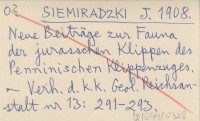 02 SIEMIRADZKI J. 1908.
Neue Beiträge zur Fauna
der jurassischen Klippen des
Penninischen Klippenzuges.
- Verh. d. k. k. Geol. Reichsan-
stalt nr 13: 291-293.